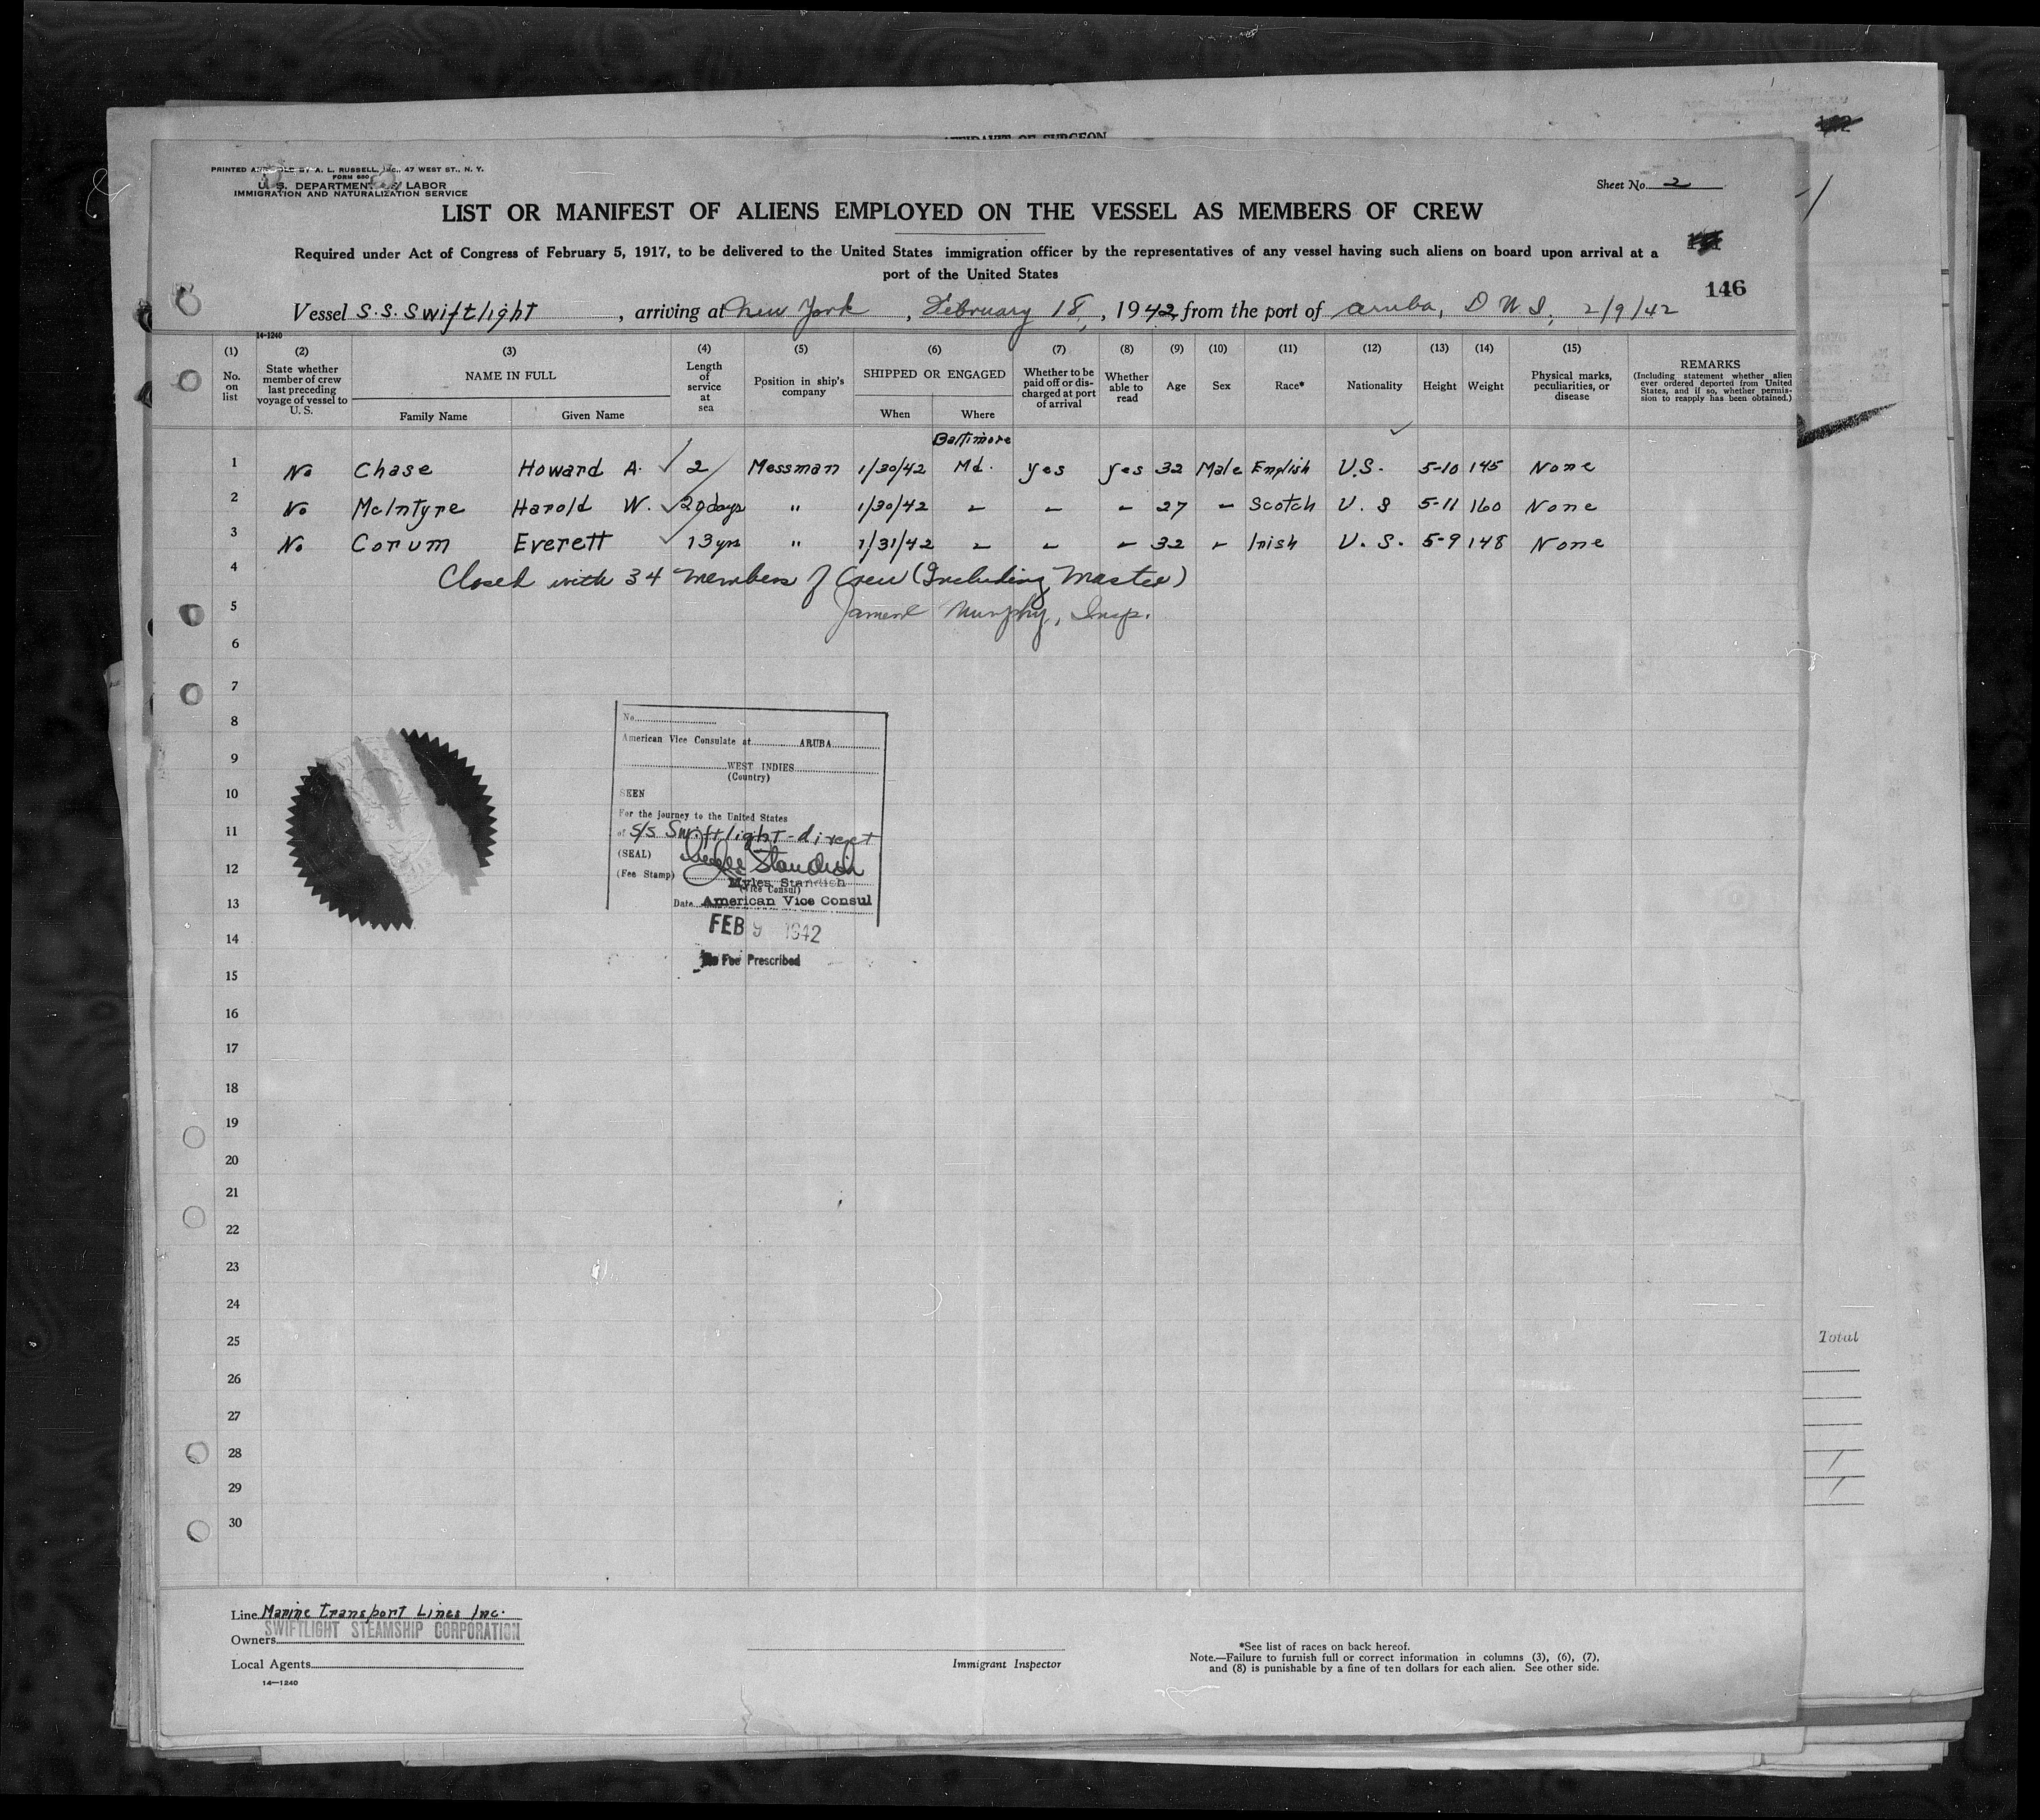 AFFIDAVIT OF SURGEON
PRINTED AND SOLD BY A. L. RUSSELL, INC., 47 WEST ST., N. Y.
FORM 680
U. S. DEPARTMENT OF LABOR
IMMIGRATION AND NATURALIZATION SERVICE
Sheet No. 2
LIST OR MANIFEST OF ALIENS EMPLOYED ON THE VESSEL AS MEMBERS OF CREW
Required under Act of Congress of February 5, 1917, to be delivered to the United States immigration officer by the representatives of any vessel having such aliens on board upon arrival at a
port of the United States
146
Vessel S.S. Swiftlight, arriving at New York, February 18, 1942, from the port of Aruba, D W I, 2/9/42
14-1240
(1) No. on list
(2) State whether member of crew last preceding voyage of vessel to U. S.
(3) NAME IN FULL
Family Name Given Name
(4) Length of service at sea
(5) Position in ship's company
(6) SHIPPED OR ENGAGED
When Where
(7) Whether to be paid off or discharged at port of arrival
(8) Whether able to read
(9) Age
(10) Sex
(11) Race*
(12) Nationality
(13) Height
(14) Weight
(15) Physical marks, peculiarities, or disease
REMARKS
(Including statement whether alien ever ordered deported from United States, and if so, whether permission to reapply has been obtained.)
Baltimore
1 No Chase Howard A. ✓ 2 Messman 1/30/42 Md. yes yes 32 Male English U.S. 5-10 145 None
2 No McIntyre Harold W. ✓ 20 days " 1/30/42 - - - 27 - Scotch U. S 5-11 160 None
3 No Corum Everett ✓ 13 yrs " 1/31/42 - - - 32 - Irish U. S. 5-9 148 None
4 Closed with 34 members of Crew (Including Master)
5 Murphy, Insp.
6
7
8
9
10
11
12
13
14
15
16
17
18
19
20
21
22
23
24
25
26
27
28
29
30
No.
American Vice Consulate at ARUBA
WEST INDIES
(Country)
SEEN
For the journey to the United States
of S/S Swiftlight - direct
(SEAL) Myles Standish
(Fee Stamp) Myles Standish
(Vice Consul)
Date American Vice Consul
FEB 9 1942
No Fee Prescribed
Total
Line Marine Transport Lines Inc.
Owners SWIFTLIGHT STEAMSHIP CORPORATION
Local Agents
14—1240
Immigrant Inspector
*See list of races on back hereof.
Note.—Failure to furnish full or correct information in columns (3), (6), (7),
and (8) is punishable by a fine of ten dollars for each alien. See other side.